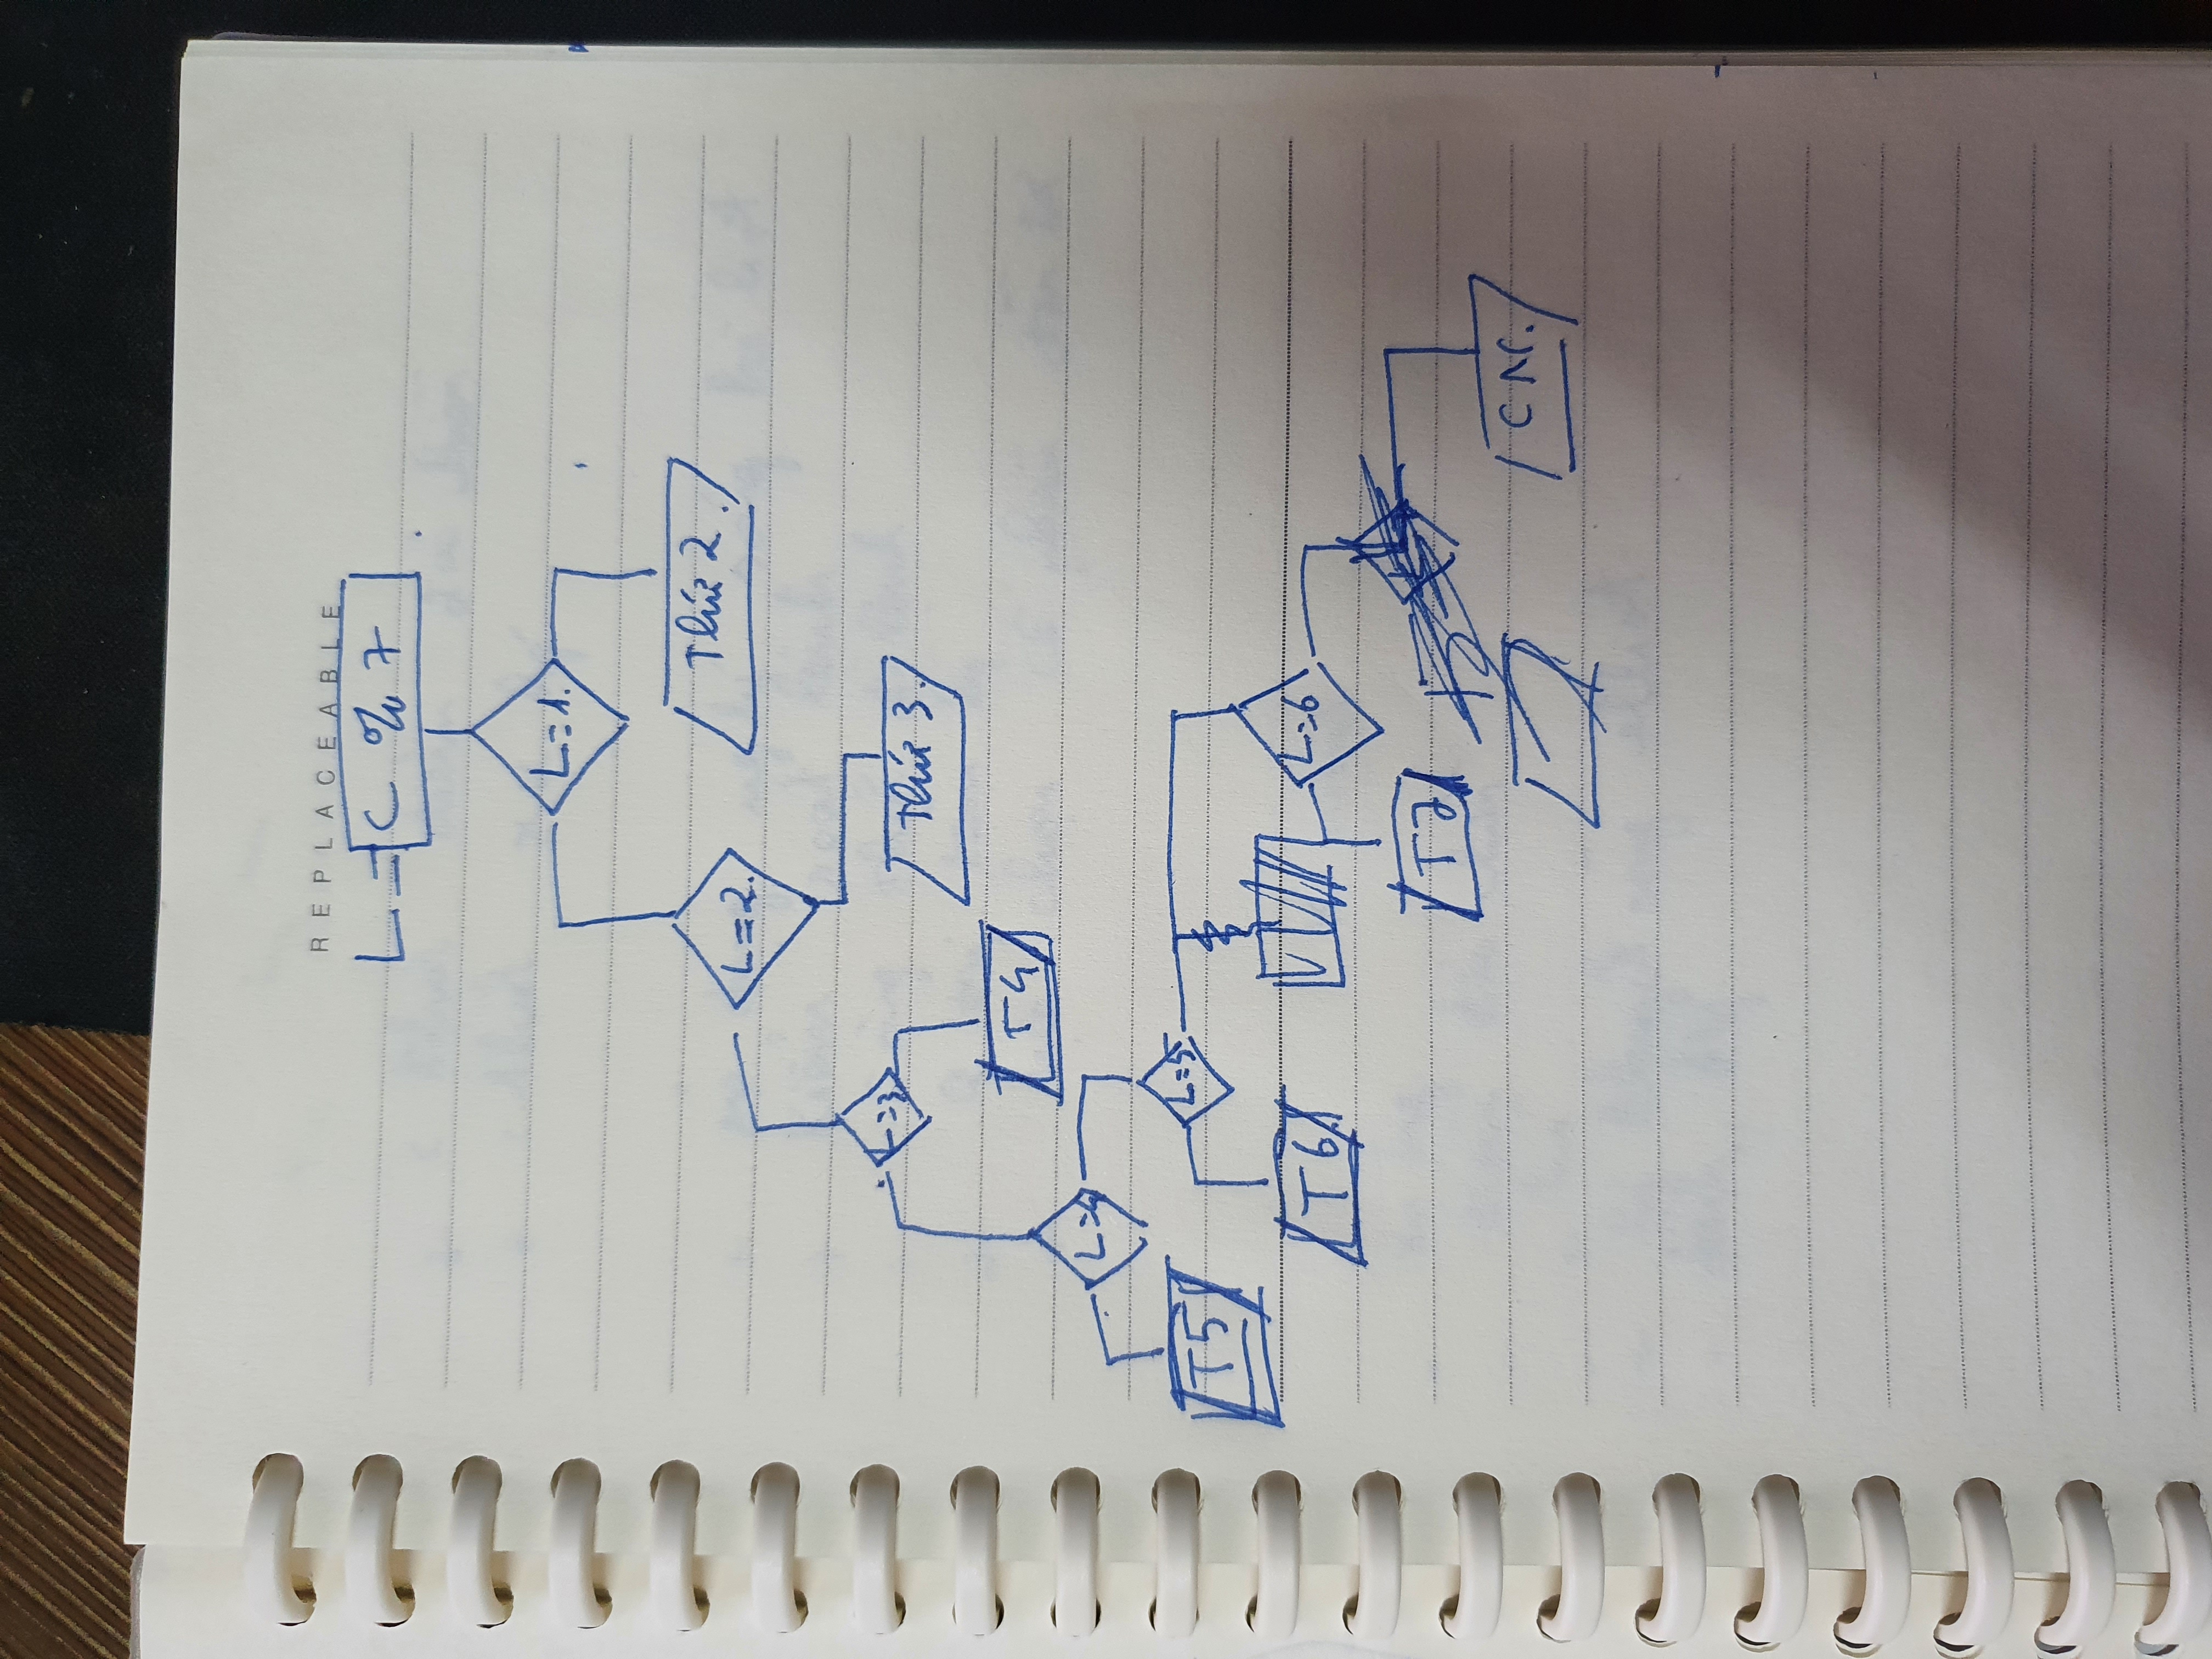 REPLACEABLE
L = C % 7
L=1.
Thứ 2.
L=2.
Thứ 3.
L=3
T4
L=4
T5
L=5
T6.
L=6
T7
CN.